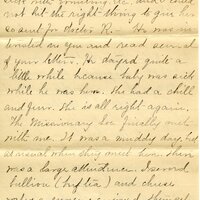 not hit the right thing to give her
so sent for Doctor K. He was in-
terested in you and read several
of your letters. He stayed quite a
little while because baby was sick
while he was here. He had a chill
and fever. He is all right again.
The Missionary Soc. finally met
with me. It was a muddy day, but
as usual when they meet here, there
was a large attendance. I served
bullion (beef tea) and cheese